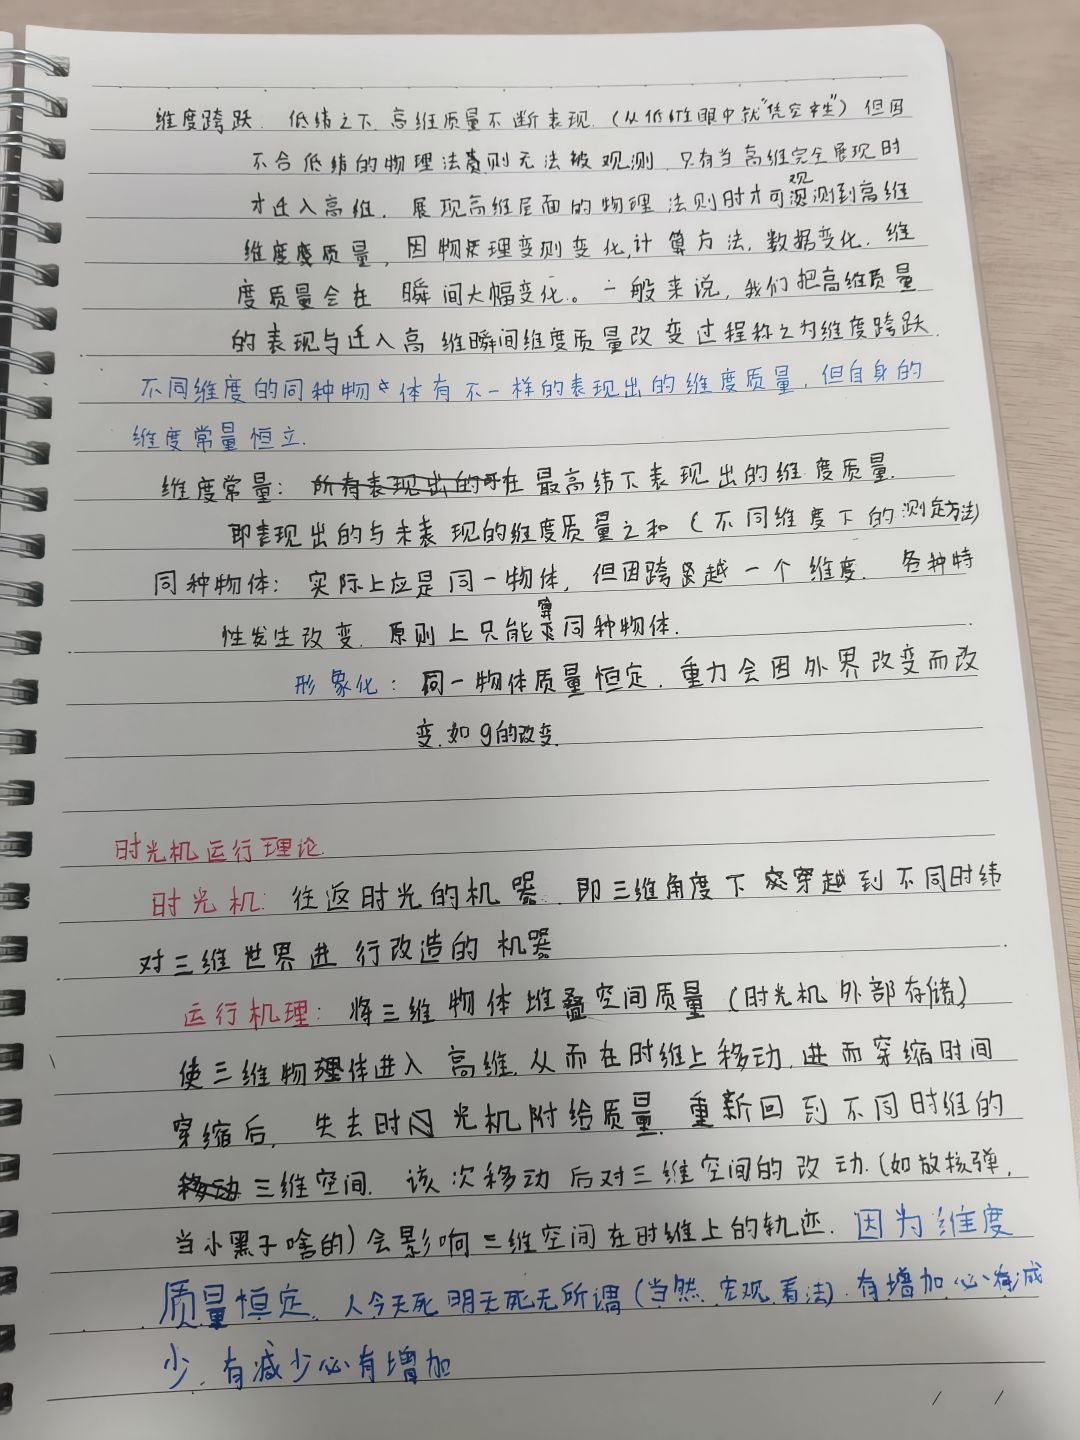 维度跨跃. 低纬之下,高维质量不断表现.(从低维眼中就"凭空产生")但因
不合低纬的物理法则无法被观测.只有当高维完全展现时
才迁入高维.展现高维层面的物理法则时才可观测到高维
维度质量,因物理变则变化,计算方法,数据变化.维
度质量会在瞬间大幅变化。一般来说,我们把高维质量
的表现与迁入高维瞬间维度质量改变过程称之为维度跨跃.
不同维度的同种物体有不一样的表现出的维度质量,但自身的
维度常量恒立.
维度常量:在最高纬下表现出的维度质量.
即表现出的与未表现的维度质量之和(不同维度下的测定方法)
同种物体:实际上应是同一物体,但因跨越一个维度.各种特
性发生改变.原则上只能算同种物体.
形象化:同一物体质量恒定.重力会因外界改变而改
变.如g的改变.
时光机运行理论.
时光机:往返时光的机器.即三维角度下穿越到不同时纬
对三维世界进行改造的机器
运行机理:将三维物体堆叠空间质量(时光机外部存储)
使三维物体进入高维.从而在时维上移动,进而穿缩时间
穿缩后,失去时光机附给质量.重新回到不同时维的
三维空间.该次移动后对三维空间的改动.(如放核弹,
当小黑子啥的)会影响三维空间在时维上的轨迹.因为维度
质量恒定.人今天死明天死无所谓(当然,宏观看法).有增加必有减
少.有减少必有增加